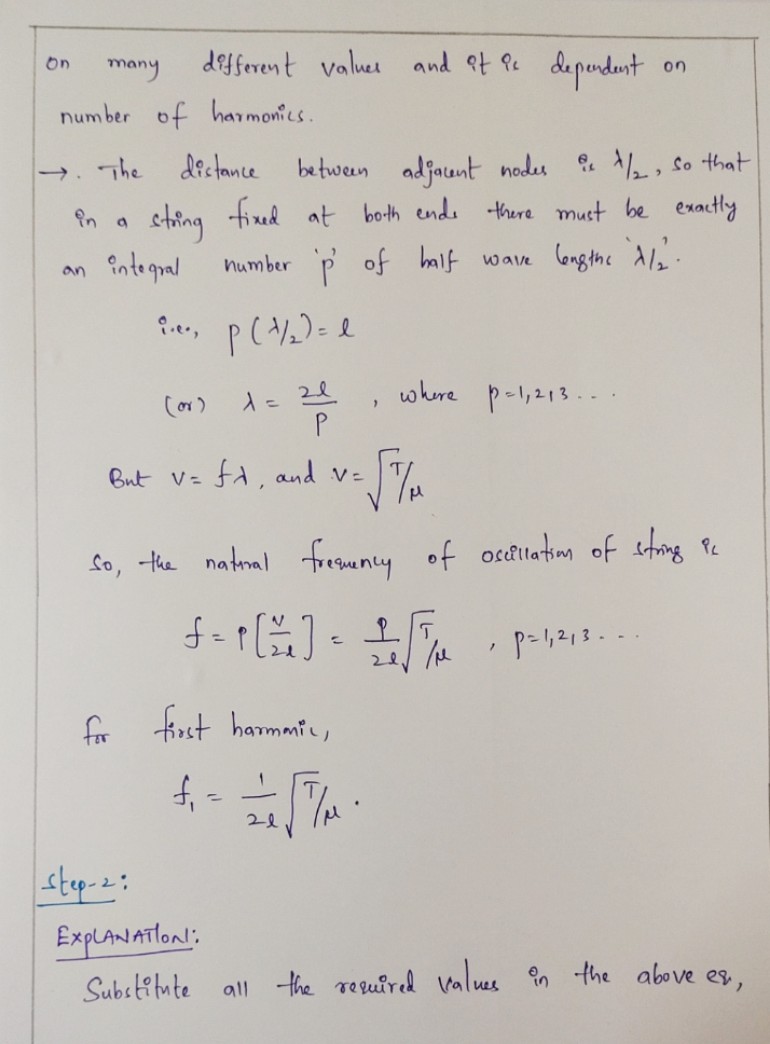 on many different values and it is dependent on
number of harmonics.
→. The distance between adjacent nodes is λ/2, so that
in a string fixed at both ends there must be exactly
an integral number 'p' of half wave lengths 'λ/2'.
i.e., p(λ/2) = l
(or) λ = 2l/p , where p=1,2,3 ...
But v = fλ, and v = √T/μ
So, the natural frequency of oscillation of string is
f = p[v/2l] = p/2l √T/μ , p=1,2,3 ...
for first harmonic,
f₁ = 1/2l √T/μ .
Step-2:
EXPLANATION:
Substitute all the required values in the above eq,